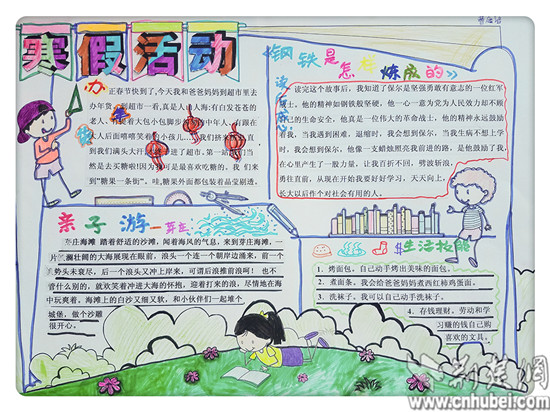 寒假活动
办年货
正春节快到了,今天我和爸爸妈妈到超市里去
办年货。到超市一看,真是人山人海:有白发苍苍的
老人、有提着大包小包脚步
中年人、有跟在
大人后面嘻嘻笑着的小孩儿
我们挤来
到我们满头大汗
进了超市。第一站
然是去买糖啦!因为
是最喜欢吃糖的。我们来
到"糖果一条街"。哇,糖果外面都包装着晶莹剔透,
《钢铁是怎样炼成的》
读后感
读完这个故事后,我知道了保尔是坚强勇敢有意志的一位红军
战士。他的精神如钢铁般坚硬,他一心一意为党为人民效力却不顾
的生命安全,他真是一位伟大的革命战士,他的精神永远鼓励
我,当我遇到困难,退缩时,我会想到保尔,当我生病不想上学
时,我会想到保尔,他像一支蜡烛照亮我前进的路,是他激励了我,
在心里产生了一股力量,让我百折不回,劈波斩浪,
勇往直前,从现在开始我要好好学习,天天向上,
长大以后作个对社会有用的人。
亲子游—莽庄
莽庄海滩 踏着舒适的沙滩,闻着海风的气息,来到莽庄海滩,一
片波澜壮阔的大海展现在眼前,浪头一个连一个朝岸边涌来,前一个
浪势头未衰尽,后一个浪头又冲上岸来,可谓后浪推前浪啊!也不
管什么别的,就欢笑着冲进大海的怀抱,迎着打来的浪,尽情地在海
中玩爽着。海滩上的白沙又细又软,和小伙伴们一起堆个
城堡,做个沙雕
很开心。
#生活技能
1、烤面包。自己动手烤出美味的面包。
2、煮面条。我会给爸爸妈妈煮西红柿鸡蛋面。
3、洗袜子。我可以自己动手洗袜子。
4、存钱理财。劳动和学
习赚的钱自己购
喜欢的文具。
www.cnhubei.com